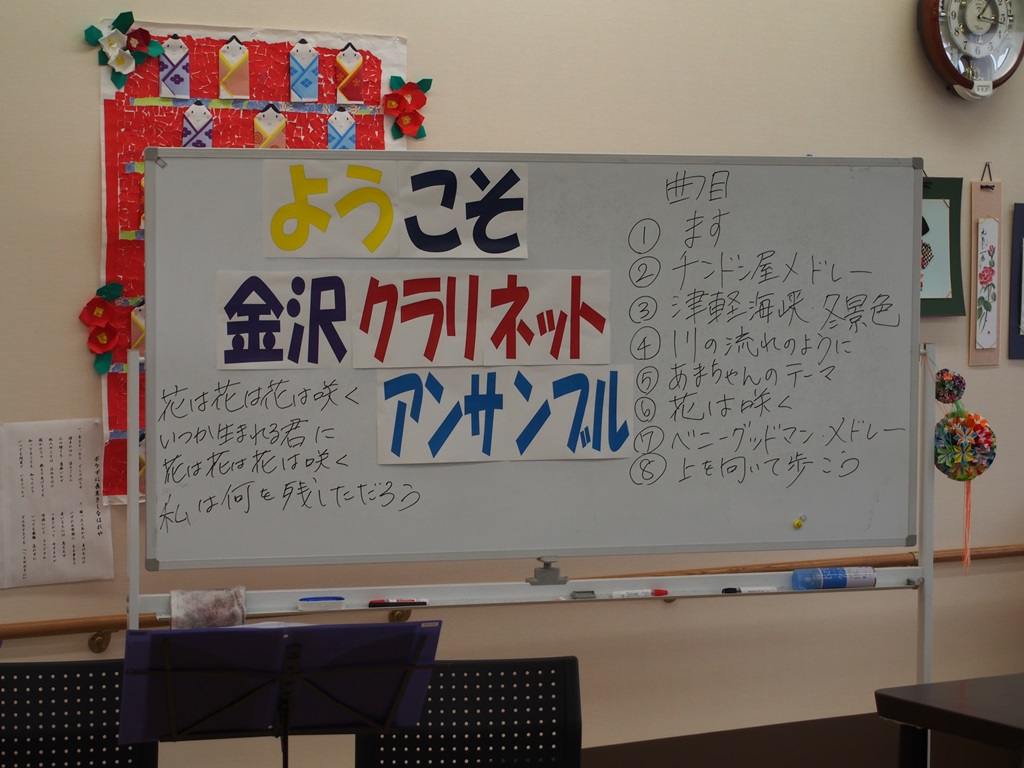 ようこそ
金沢クラリネット
アンサンブル
花は花は花は咲く
いつか生まれる君に
花は花は花は咲く
私は何を残しただろう
曲目
① ます
② チンドン屋メドレー
③ 津軽海峡・冬景色
④ 川の流れのように
⑤ あまちゃんのテーマ
⑥ 花は咲く
⑦ ベニーグッドマン・メドレー
⑧ 上を向いて歩こう